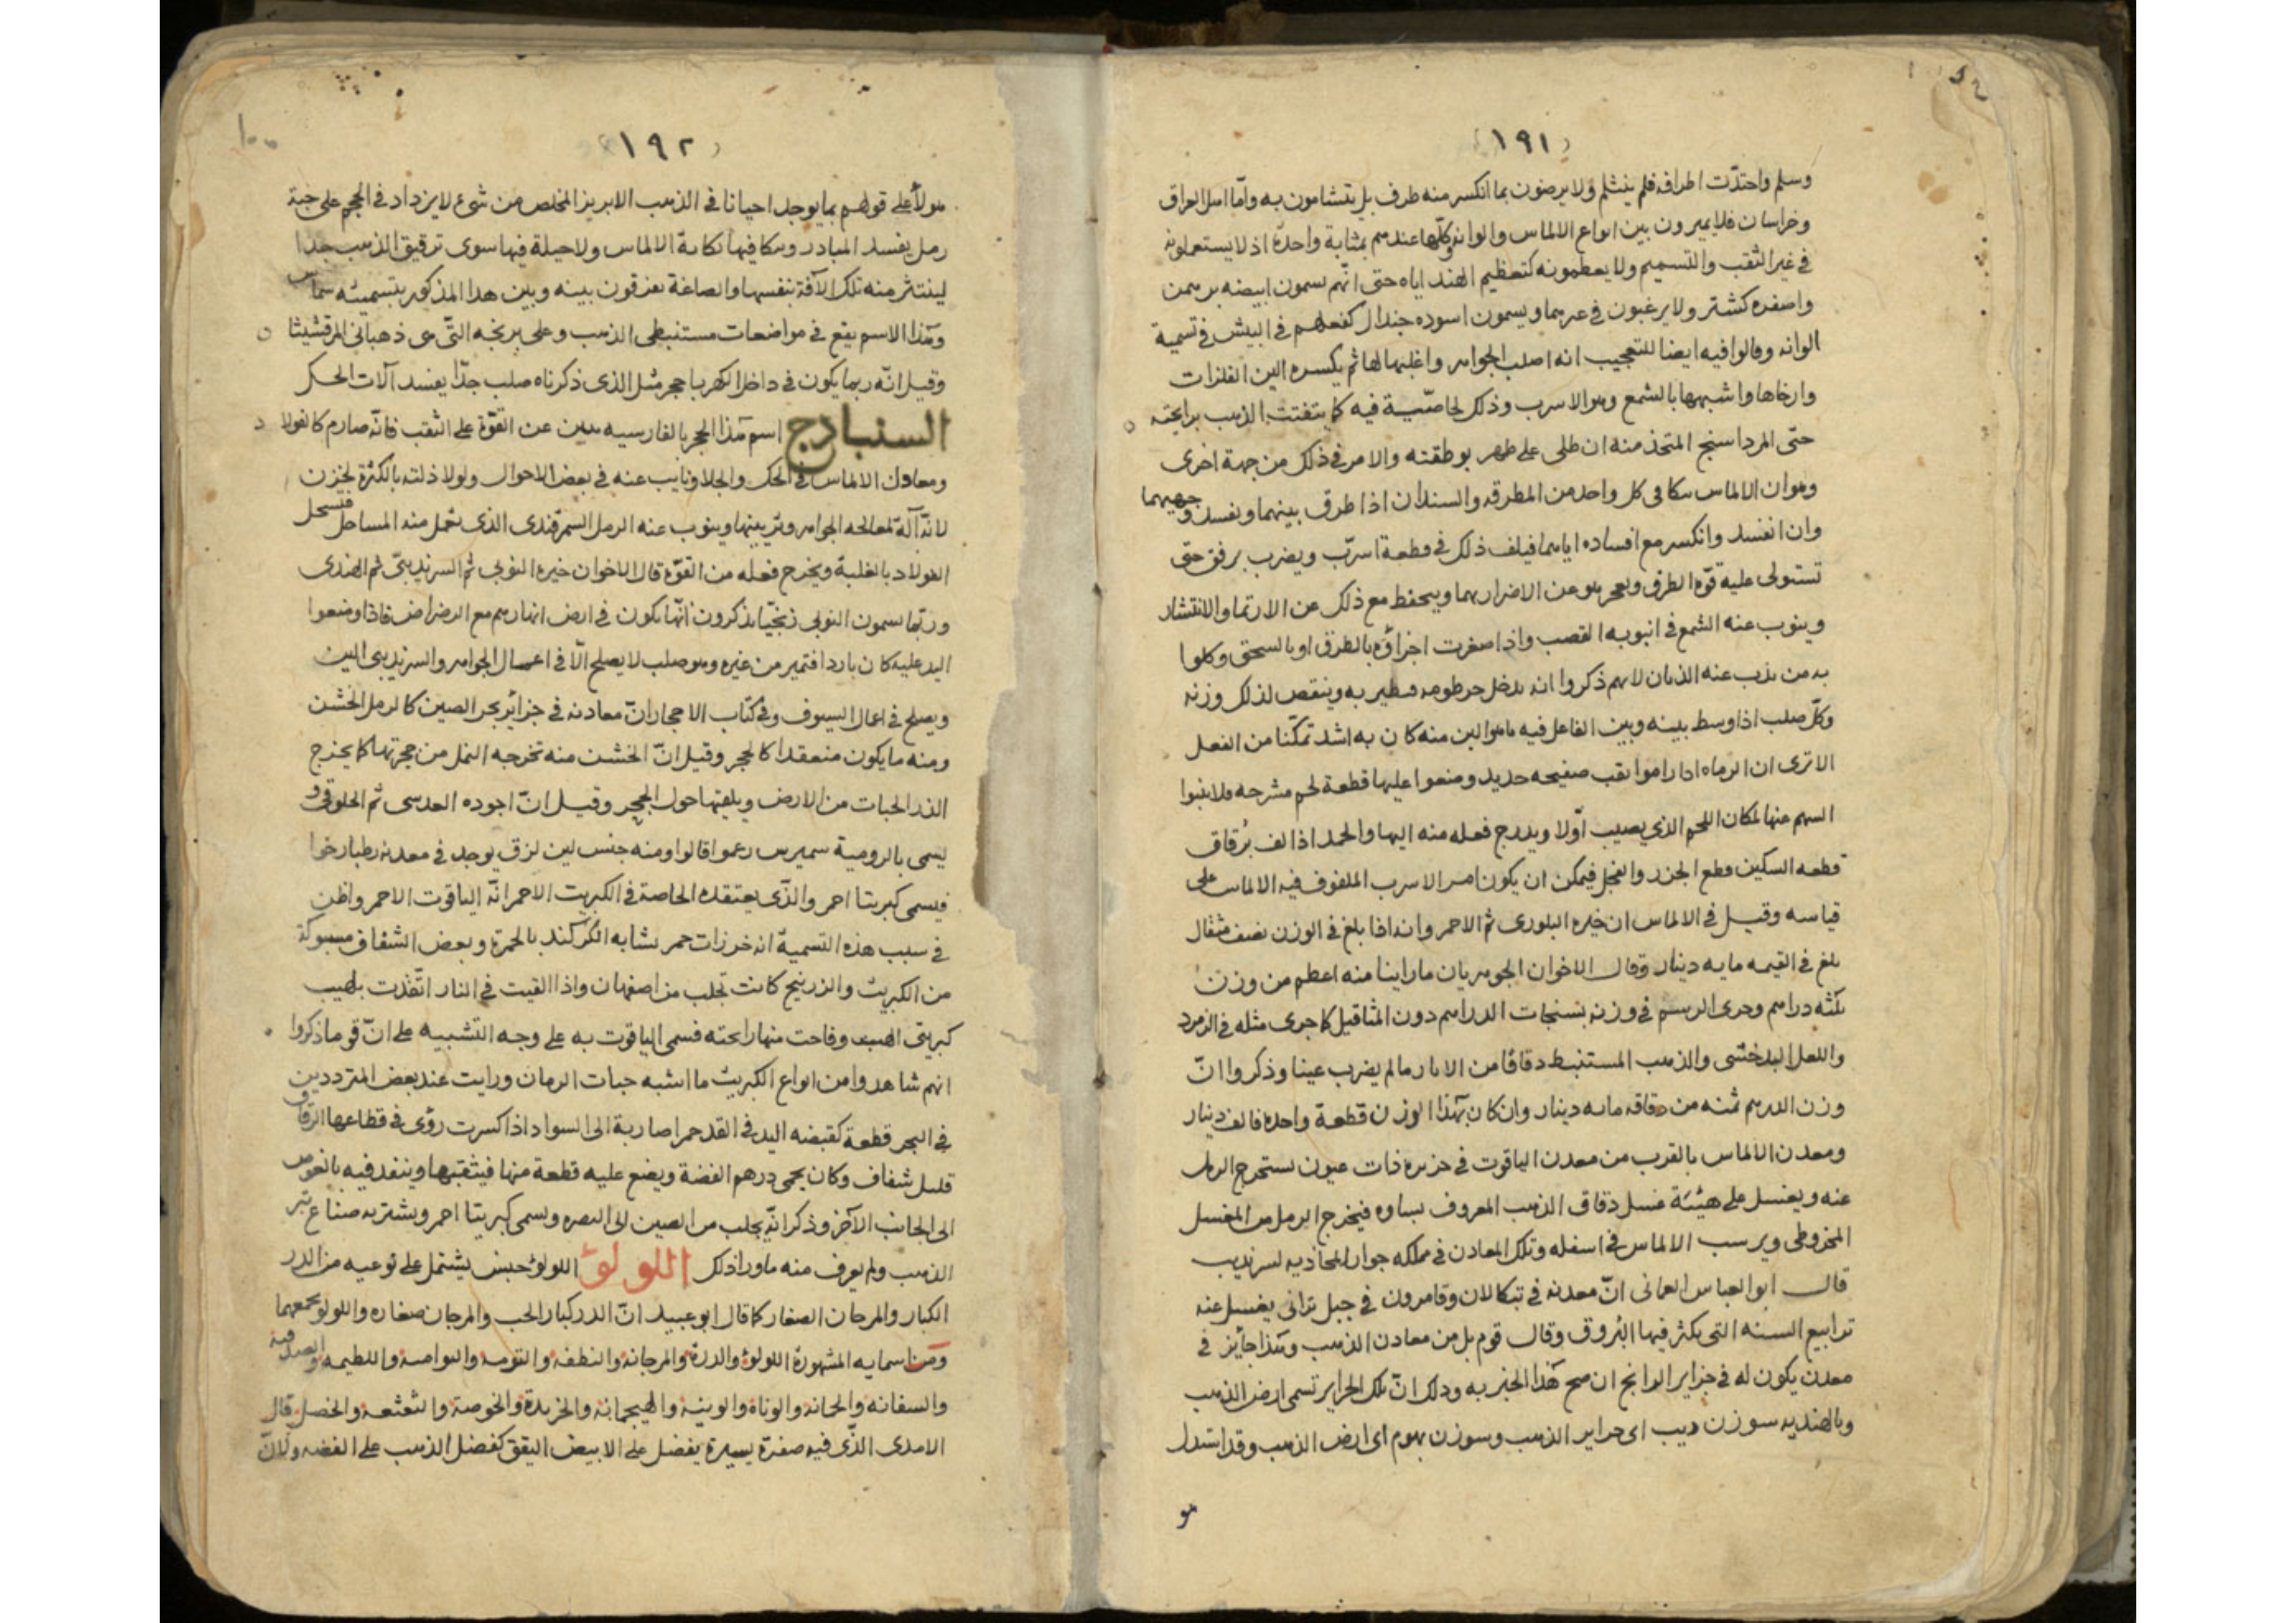 ١٩١
وسلم واحتدّت اطرافه فلم ينثلم ولا يرضون بما انكسر منه طرف بل يتشامون به وامّا اهل العراق
وخراسان فلا يميزون بين انواع الالماس والوانه وكلّها عندهم بمثابة واحدة اذ لا يستعملونه
في غير الثقب والتسميم ولا يعظمونه كتعظيم الهند اياه حتى انّهم يسمون ابيضه برهمن
واصفره كشتر ولا يرغبون في غيرهما ويسمون اسوده جندال كفعلهم في البيش في تسمية
الوانه وقالوا فيه ايضا للتعجيب انه اصلب الجواهر واغلبها لها ثم يكسره الين الفلزات
وارخاها واشبهها بالشمع وهو الاسرب وذلك لخاصّية فيه كما يتفتت الذهب برايحته
حتّى المرداسنج المتخذ منه ان طلى على ظهر بوطقته والامر في ذلك من جهة اخرى
وهو ان الالماس ينكا في كل واحد من المطرقه والسندان اذا طرق بينهما ويفسد وجهيهما
وان انفسد وانكسر مع افساده اياهما فيلف ذلك في قطعة اسرّب ويضرب برفق حتّى
تستولى عليه قوّة الطرق ويعجز هو عن الاضرار بهما ويحفظ مع ذلك عن الارتما والانتشار
وينوب عنه الشمع في انبوبه القصب واذا صغرت اجزاؤه بالطرق او بالسحق وكلوا
به من يذب عنه الذبان لانهم ذكروا انه يدخل خرطومه فيطير به وينقص لذلك وزنه
وكلّ صلب اذا وسط بينه وبين الفاعل فيه ما هو الين منه كان به اشد تمكّنا من الفعل
الا ترى ان الرماه اذا راموا ثقب صفيحه حديد وضعوا عليها قطعة لحم مشرحه فلا ينبوا
السهم عنها لمكان اللحم الذي يصيب اوّلا ويدرج فعله منه اليها والحمد اذا لف برقاق
قطعه السكين قطع الجزر والفجل فيمكن ان يكون امر الاسرب الملفوف فيه الالماس على
قياسه وقيل في الالماس ان خيره البلورى ثم الاحمر وانه اذا بلغ في الوزن نصف مثقال
بلغ في القيمه مايه دينار وقال الاخوان الجوهريان ما راينا منه اعظم من وزن
ثلثه دراهم وجرى الرسم في وزنه بسنجات الدراهم دون المثاقيل كما جرى مثله في الزمرد
واللعل البدخشى والذهب المستنبط دقاقا من الابار ما لم يضرب عينا وذكروا انّ
وزن الدرهم ثمنه من دقاقه مايه دينار وان كان بهذا الوزن قطعة واحده فالف دينار
ومعدن الالماس بالقرب من معدن الياقوت في جزيره ذات عيون يستخرج الرمل
عنه ويغسل على هيئة غسل دقاق الذهب المعروف بساوه فيخرج الرمل من المغسل
المخروطى ويرسب الالماس في اسفله وتلك المعادن في مملكه جوار المحاذيه لسرنديب
قال ابو العباس العمانى انّ معدنه في تنكالان وقامرون في جبل ترانى يغسل عنه
ترابيع السنه التى يكثر فيها البروق وقال قوم بل من معادن الذهب وهذا جائز في
معدن يكون له في جزاير الوانج ان صح هذا الخبر به وذلك انّ تلك الجزاير تسمى ارض الذهب
وبالهنديه سورن ديب اى جزاير الذهب وسورن بهوم اى ارض الذهب وقد استدل
هو
١٩٢
هولاء على قولهم بما يوجد احيانا في الذهب الابريز المخلص من شىء لا يزداد في الحجم على حبة
رمل يفسد المبادر وينكا فيها نكاية الالماس ولا حيلة فيها سوى ترقيق الذهب جدا
لينتثر منه تلك الآفة بنفسها والصاغة يفرقون بينه وبين هذا المذكور بتسميته سماس
وهذا الاسم يقع في مواضعات مستنبطى الذهب وعلى بريخه التّى هى ذهبانى المرقشيثا
وقيل انّه ربما يكون في داخل الكهربا حجر مثل الذى ذكرناه صلب جدّا يفسد آلات الحك
السنباذج اسم هذا الحجر بالفارسيه يبين عن القوّة على الثقب فانّه صارم كالفولاد
ومعادل الالماس في الحك والجلا ونايب عنه في بعض الاحوال ولولا ذلته بالكثرة لخزن
لانّه آلة لمعالجه الجواهر وتربيتها وينوب عنه الرمل السمرقندى الذى يعمل منه المساحل فيسحل
الفولاد بالغلبة ويخرج فعله من القوّة قال الاخوان خيره النوبى ثم السرنديبىّ ثم الهندى
وربّما يسمون النوبى زنجيّا يذكرون انّها يكون في ارض انهارهم مع الرضراض فاذا وضعوا
اليد عليه كان باردا فتميز من غيره وهو صلب لا يصلح الّا في اعمال الجواهر والسرنديبى الين
ويصلح في اعمال السيوف وفي كتاب الاحجار انّ معادنه في جزائر بحر الصين كالرمل الخشن
ومنه ما يكون منعقدا كالحجر وقيل انّ الخشن منه تخرجه النمل من حجرتها كما يخرج
الذر الحبات من الارض ويلقيها حول الجحر وقيل انّ اجوده العدسى ثم الحلوقى و
يسمى بالرومية سميرس زعموا قالوا ومنه جنس لين لزق يوجد في معدنه رطبا رخوا
فيسمى كبريتا احمر والذّى يعتقده الخاصة في الكبريت الاحمر انّه الياقوت الاحمر واظن
في سبب هذه التسمية انه خرزات حمر تشابه الكركند بالحمرة وبعض الشفاف مسبوكة
من الكبريت والزرنيخ كانت تجلب من اصفهان واذا القيت في النار اتّقدت بلهيب
كبريتى وفاحت منها رايحته فسمى الياقوت به على وجه التشبيه على انّ قوما ذكروا
انهم شاهدوا من انواع الكبريت ما اشبه حبات الرمان ورايت عند بعض المترددين
في البحر قطعة كقبضه اليد في القد حمرا ضاربة الى السواد اذا كسرت رؤى في قطاعها الرقاق
قليل شفاف وكان يحمى درهم الفضة ويضع عليه قطعة منها فيثقبها وينفد فيه بالغوص
الى الجانب الآخر وذكر انّه يجلب من الصين الى البصره ويسمى كبريتا احمر ويشتريه صناع تبر
الذهب ولم يعرف منه ماورا ذلك اللولؤ اللولؤ جنس يشتمل على نوعيه من الدر
الكبار والمرجان الصغار كما قال ابو عبيد انّ الدر كبار الحب والمرجان صغاره واللولو يجمعهما
ومن اسمايه المشهورة اللولؤ والدرة والمرجانه والنطفه والتومه والتوامية واللطيمه والصدفيه
والسفانه والجمانه والوناة والونية والهيجمانه والخريدة والخوصة والثعثعه والخضل قال
الامدى الذّى فيه صفرة يسيرة يفضل على الابيض اليقق كفضل الذهب على الفضه ولانّ